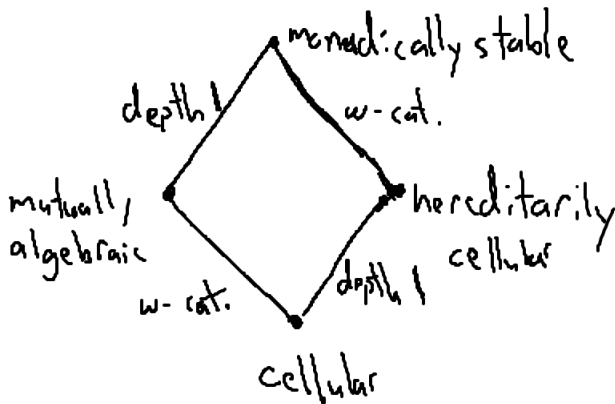 monadically stable
depth 1
ω-cat.
mutually
algebraic
hereditarily
cellular
ω-cat.
depth 1
cellular